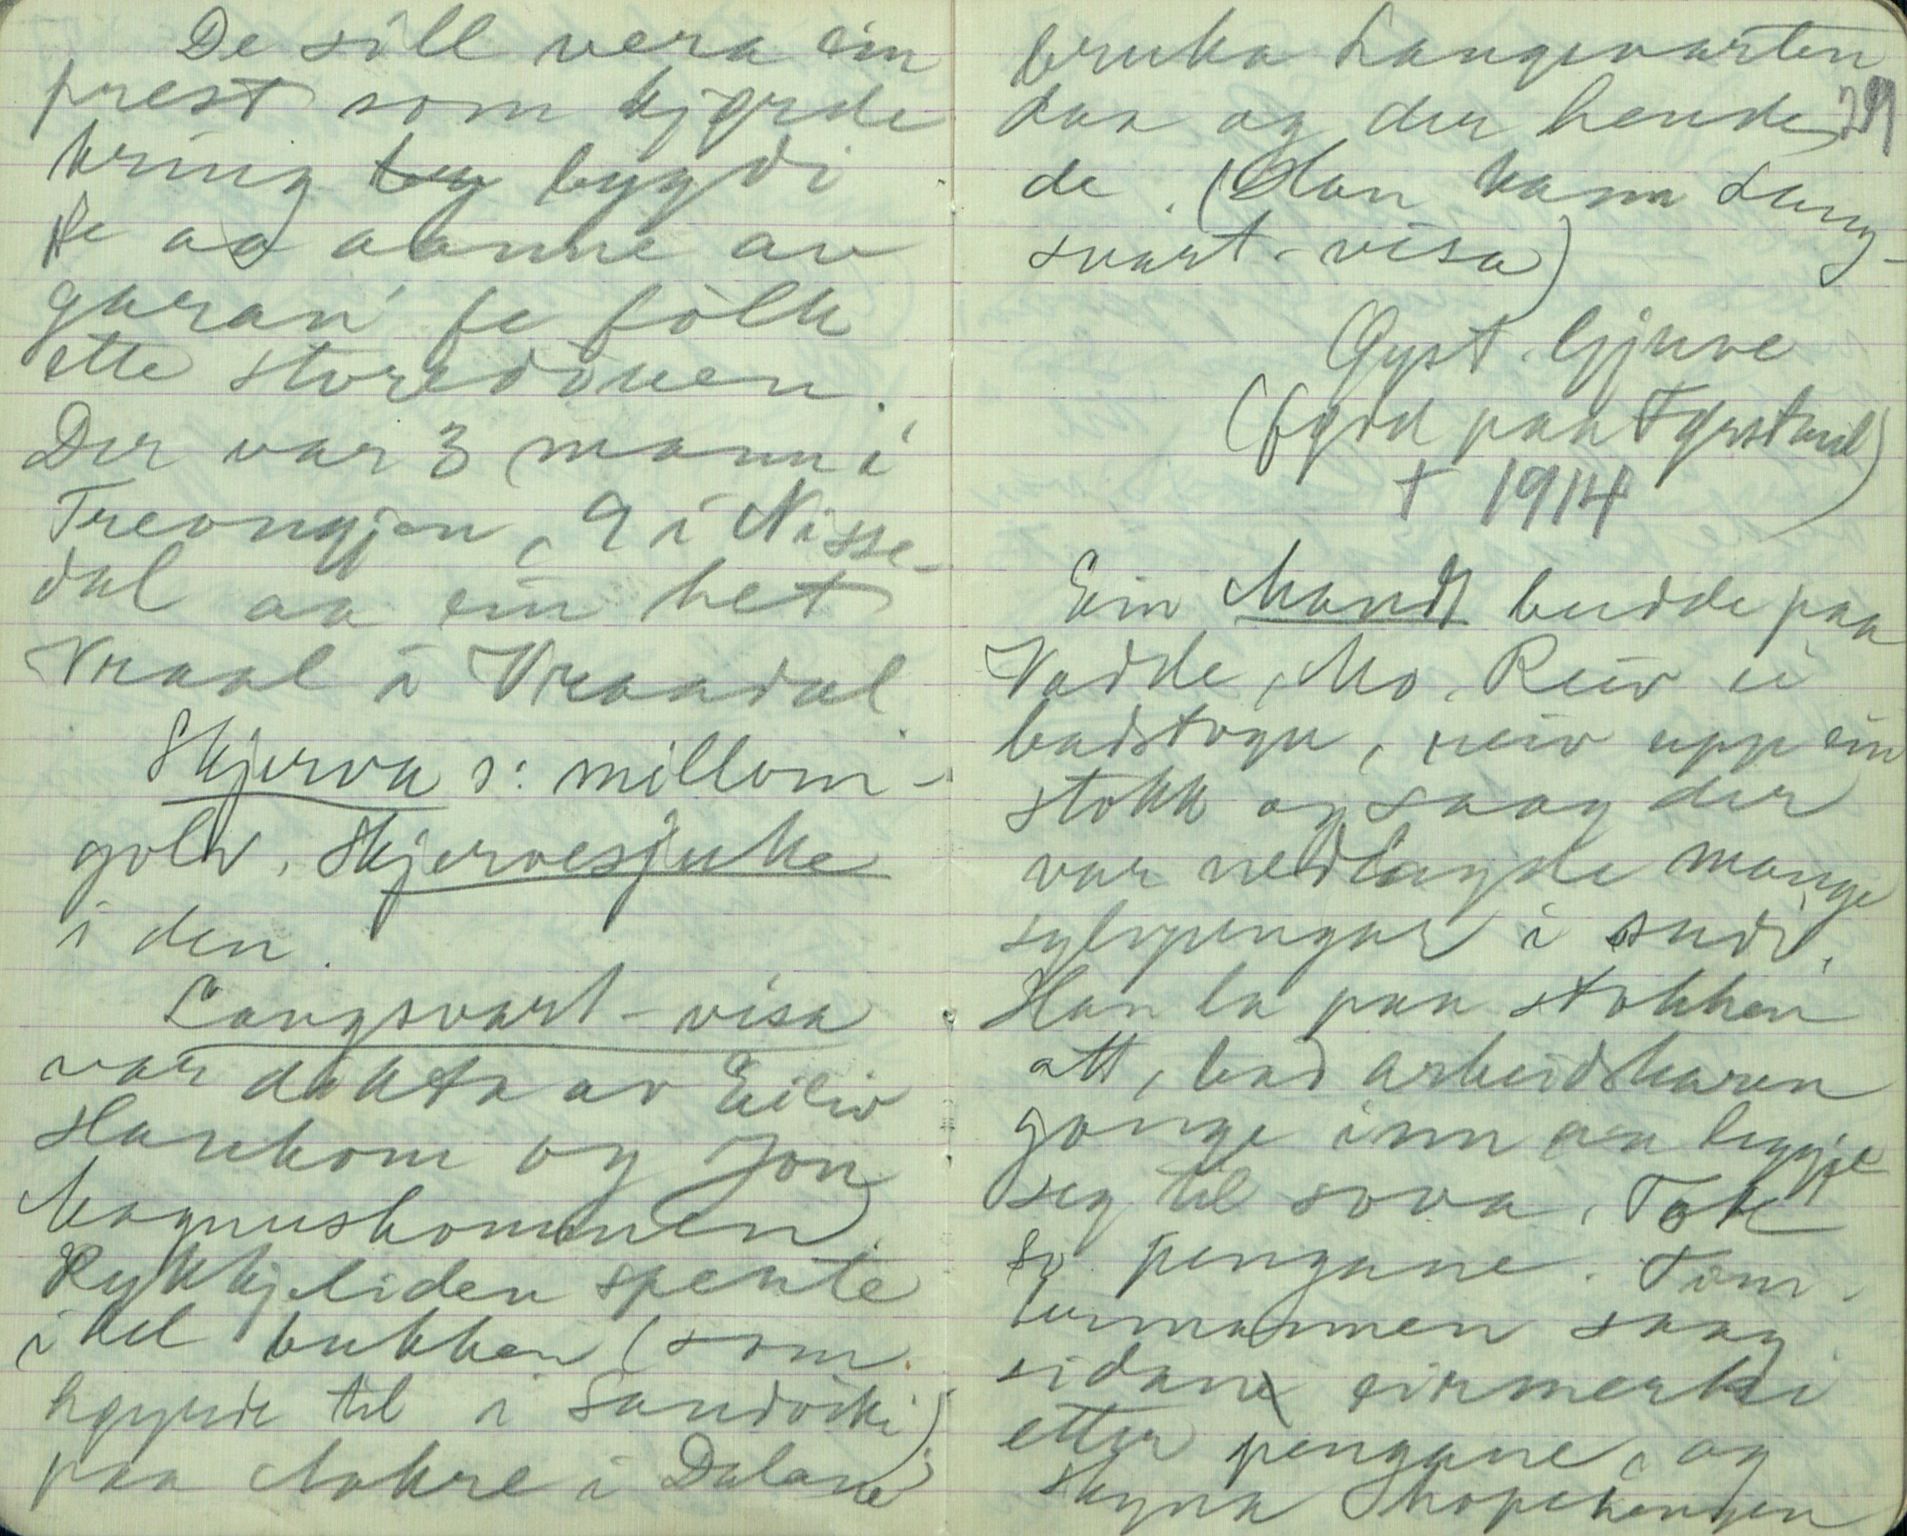 De sill vera ein
prest som kjørde
kring by bygdi
te aa aanne av
garan' fe fólk
ette storedauen.
Der var 3 mann i
Treongjen, 9 i Nisse-
dal aa ein het
Vraal i Vraadal.
Skjerva ɔ: millom-
golv, Skjervesjuke
i den.
Langsvart-visa
var dikta av Eiliv
Harekom og Jon
Magnuskommen.
Rykkjeliden spente
i hel bukken (som
høyrde til i Sandviki)
paa Mokre i Dalane
bruka Langsvarten
daa og der hende
29
de. (Han kann Lang-
svart-visa)
Øyst. Gjuve
(fødd paa Tyrstveil)
† 1914
Ein Mandt budde paa
Vadde, Mo. Reiv ei
badstogu, reiv upp ein
stokk og saag der
var nedlagde mange
sylvpengar i
Han la paa stokken
att, bad arbeidskaren
gonge inn aa leggje
seg til sova. Tok
so pengane. Tøm-
bermannen saag
sidan eirmerki
etter pengane, og